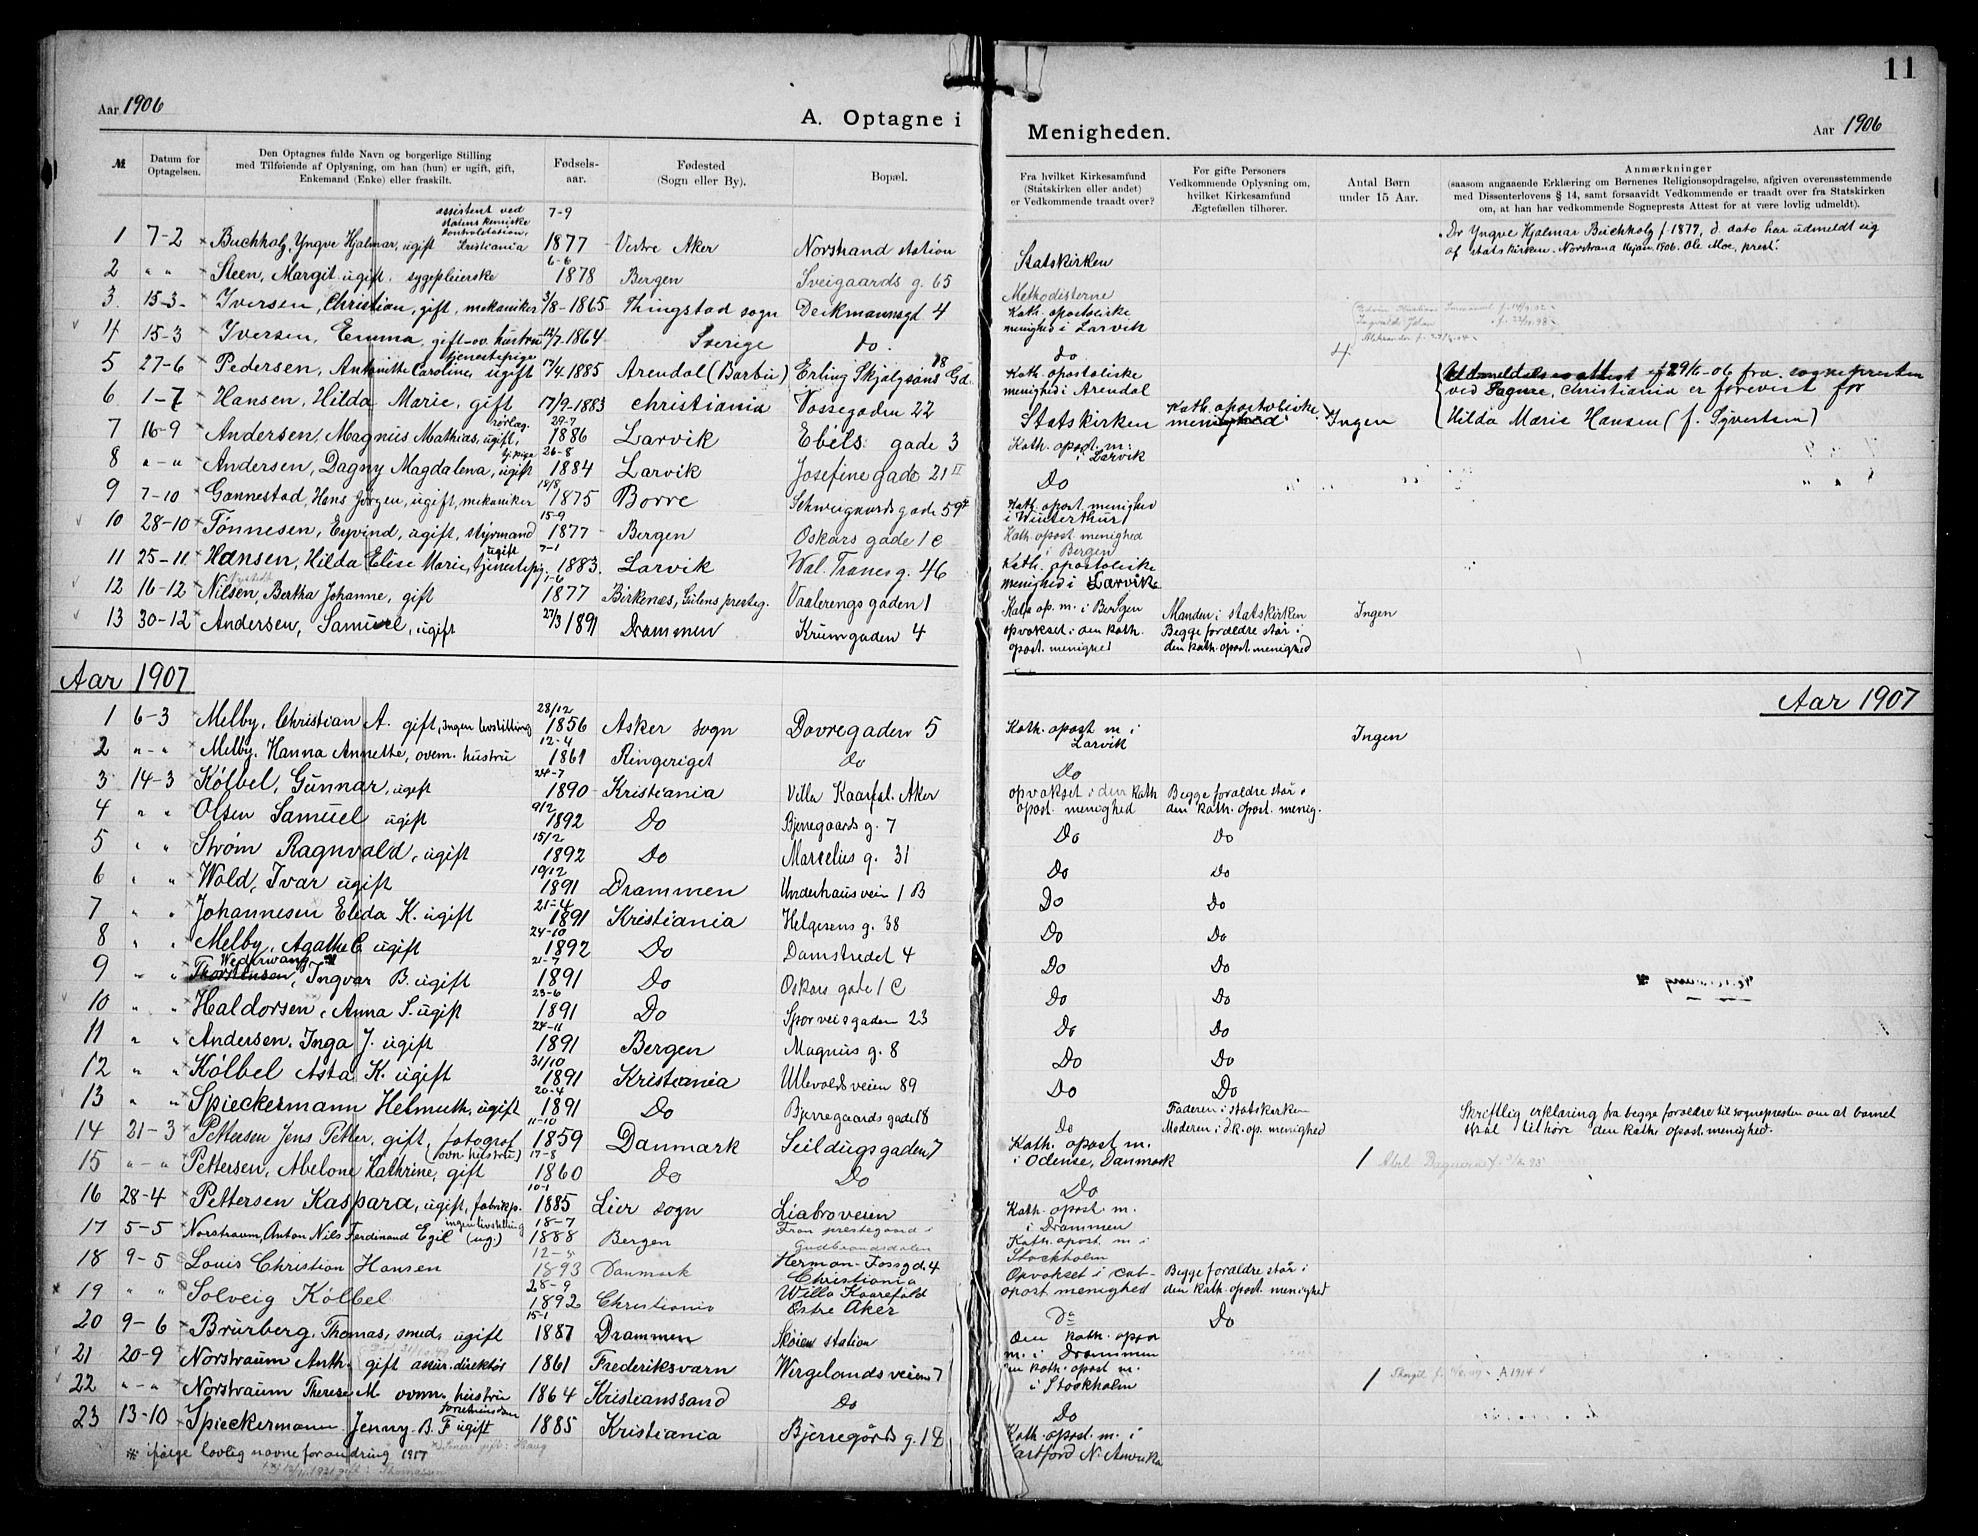 11
Aar 1906
A. Optagne i Menigheden.
Aar 1906
№
Datum for Optagelsen.
Den Optagnes fulde Navn og borgerlige Stilling
med Tilføiende af Oplysning, om han (hun) er ugift, gift,
Enkemand (Enke) eller fraskilt.
Fødsels-
aar.
Fødested
(Sogn eller By).
Bopæl.
Fra hvilket Kirkesamfund
(Statskirken eller andet)
er Vedkommende traadt over?
For gifte Personers
Vedkommende Oplysning om,
hvilket Kirkesamfund
Ægtefællen tilhører.
Antal Børn
under 15 Aar.
Anmærkninger
(saasom angaaende Erklæring om Børnenes Religionsopdragelse, afgiven overensstemmende
med Dissenterlovens § 14, samt forsaavidt Vedkommende er traadt over fra Statskirken
om, at han har vedkommende Sogneprests Attest for at være lovlig udmeldt).
assistent ved
statens kemiske
kontrolstation,
1 7-2 Buchholz, Yngve Hjalmar, ugift Kristiania 7-9 1877 Vestre Aker Norstrand station Statskirken
Dr Yngve Hjalmar Buchholz f. 1877, d. dato har udmeldt sig
af statskirken. 1906. Ole Moe, prest.
2 " " Steen, Margit ugift. sygepleierske 6-6 1878 Bergen Sveigaards g. 65 Methodisterne
3 15-3 Iversen, Christian, gift, mekaniker 3/8-1865 Thingstad sogn Deikmannsgt 4 Kath. apostoliske menighed i Larvik
4 15-3 Iversen, Emma, gift ov. hustru 1864 Sverige do. do 4
5 27-6 Pedersen, Antonitte Caroline, ugift tjenestepige 17/4 1885 Arendal (Barbu) Erling Skjalgsøns Gd. 18 Kath. apostoliske menighed i Arendal
6 1-7 Hansen, Hilda Marie, gift 17/9-1883 Christiania Vossegaden 22 Statskirken Kath. apostoliske menighed Ingen
29/6-06 fra sognepresten
ved Fagerb., Christiania er forevist for
Hilda Marie Hansen (f. Syvertsen)
7 16-9 Andersen, Magnus Mathias, ugift, rørlæg. 29-7 1886 Larvik Ebels gade 3 Kath. apost. m. i Larvik
8 " - " Andersen, Dagny Magdalena, ugift tj.pige 26-8 1884 Larvik Josefine gade 21 II Do
9 7-10 Gannestad, Hans Jørgen, ugift, mekaniker 18/8 1875 Borre Schweigaards gade 59 Kath. apost. menighed i Winterthur
10 28-10 Tönnesen, Eyvind, ugift, styrmand 15-9 1877 Bergen Oskars gade 1 C Kath. apost menighed i Bergen
11 25-11 Hansen, Hilda Elise Marie, tjenestepig. ugift 7-1 1883 Larvik Wal. Tranes g. 46 Kath. apostoliske menighed i Larvik
12 16-12 Nilsen, Bertha Johanne, gift 1-6 1877 Birkenes, Lilens presteg. Vaalerengsgaden 1 Kath ap. m. i Bergen Manden i statskirken Ingen
13 30-12 Andersen, Samuel, ugift 27/3 1891 Drammen Krumgaden 4 opvokset i den kath. apost. menighed Begge forældre står i den kath. apost. menighed
Aar 1907
Aar 1907
1 6-3 Melby, Christian A. gift, ingen livstilling 28/12 1856 Asker sogn Dovregaden 5 Kath. apost m i Larvik Ingen
2 " - " Melby, Hanna Annette, ovem. hustru 12-4 1861 Ringeriget do Do
3 14-3 Kölbel, Gunnar, ugift 24-7 1890 Kristiania Villa Kaarfal. Aker opvokset i den kath apost. menighed Begge forældre står i den kath. apost. menig.
4 " " Olsen Samuel ugift 9/2 1892 Do Bjerregaards g. 7 Do Do
5 " " Strøm Ragnvald, ugift 15/2 1892 Do Marselius g. 31 Do Do
6 " " Wold, Ivar ugift 10/12 1891 Drammen Underhausvein 1 B Do Do
7 " " Johannesen Elida K. ugift 21-4 1891 Kristiania Helgesens g. 38 Do Do
8 " " Melby, Agathe C ugift 24-10 1892 Do Damstredet 4 Do Do
9 " " Thorstensen, Wederwang Ingvar B. ugift 21-7 1891 Do Oskars gade 1 C Do Do
10 " " Haldorsen, Anna S. ugift 23-6 1891 Do Sporveisgaden 23 Do Do
11 " " Andersen, Inga J. ugift 24-11 1891 Bergen Magnus g. 8 Do Do
12 " " Kölbel Asta K. ugift 31/10 1891 Kristiania Ullevoldsveien 89 Do Do
13 " " Spieckermann Helmuth, ugift 20-4 1891 Do Bjerregaards gade 18 Do Faderen i statskirken Moderen i d. k. ap. menighed
Skriftlig erklæring fra begge forældre til sognepresten om at barnet
skal tilhøre den kath. apost. menighed.
14 21-3 Pettersen Jens Petter, gift, fotograf 11-10 1859 Danmark Seildugsgaden 7 Kath. apost m. i Odense, Danmark 1
15 " - " Pettersen, Abelone Kathrine, gift (ovn. hustru) 17-8 1860 Do Do Do
16 28-4 Pettersen Kaspara, ugift, fabrikp. 10-1 1885 Lier sogn Liabroveien Kath. apost m. i Drammen
17 5-5 Norstraum, Anton Nils Ferdinand Egil (ug.) ingen livstilling 18-7 1888 Bergen Fron prestegaard i Gudbrandsdalen Kath. apost. m i Stockholm
18 9-5 Louis Christian Hansen 12-5 1893 Danmark Herman-Fossgd. 4 Christiania Opvokset i cat-apost menighed Begge forældre står i den kath. apost. menighed
19 " " Solveig Kölbel 28-9 1892 Christiania Willa Kaarefald Østre Aker Do Do
20 9-6 Brurberg, Thomas, smed, ugift 15-1 1887 Drammen Skøien station Den kath. apost m. i Drammen
21 20-9 Norstraum Anth. gift assur. direktør 1861 Frederiksvarn Wergelandsveien 7 Den kath. apost m. i Stockholm 1
22 " - " Norstraum Therese M ovnn. hustru 1864 Kristianssand Do Do
23 13-10 Spieckermann Jenny B. F ugift 1885 Kristiania Bjerregårds g. 18 Kath. apost. m. i Hartford N. Amerika
※ ifølge lovlig navneforandring 1917
gift: Thomassen